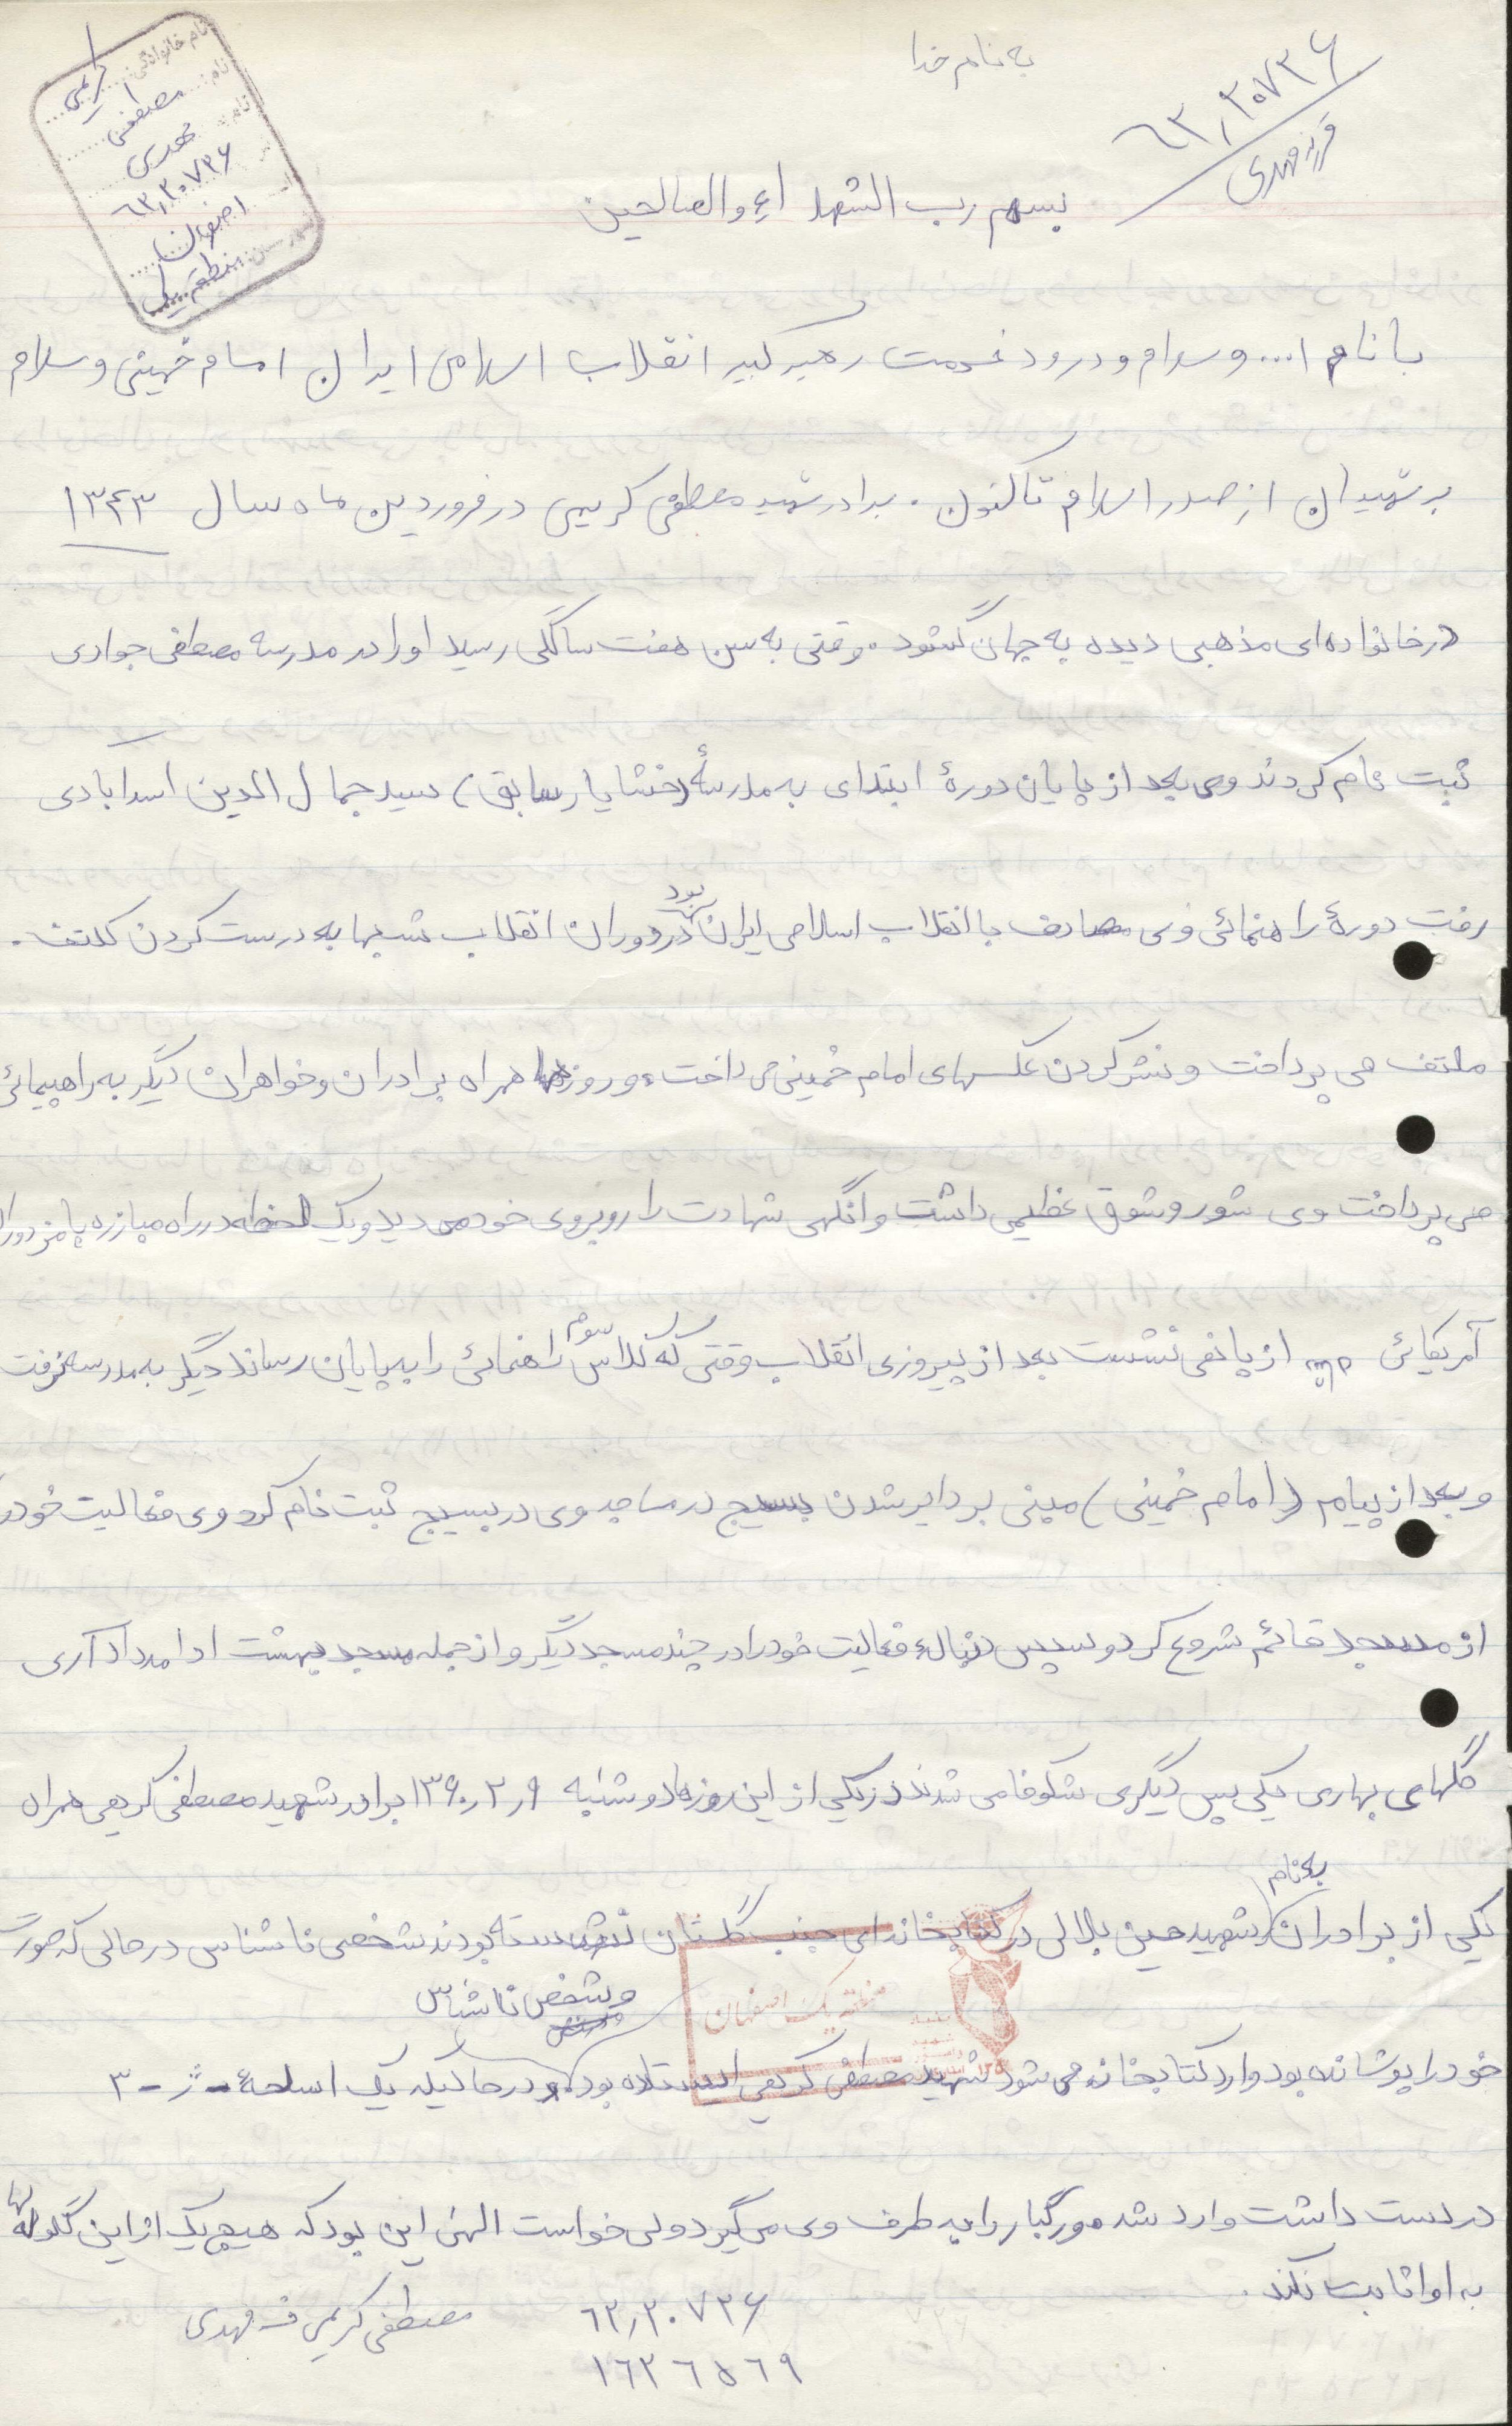 به نام خدا
۶۳٫۲۰۷۳۶
فرزند مهدی
نام خانوادگی: کریمی
نام: مصطفی
نام: مهدی
۶۳٫۲۰۷۳۶
اصفهان
منطقه یک
بسهم رب الشهداء والصالحین
با نام ا... و سلام و درود خدمت رهبر کبیر انقلاب اسلامی ایران امام خمینی و سلام
بر شهیدان از صدر اسلام تاکنون. برادر شهید مصطفی کریمی در فروردین ماه سال ۱۳۴۳
در خانواده‌ای مذهبی دیده به جهان گشود. وقتی به سن هفت سالگی رسید او را در مدرسه مصطفی جوادی
ثبت نام کردند وی بعد از پایان دورهٔ ابتدای به مدرسهٔ (خشایار سابق) سید جمال الدین اسدآبادی
رفت دورهٔ راهنمائی وی مصادف با انقلاب اسلامی ایران بود در دوران انقلاب شبها به درست کردن کلتف.
ملتف می پرداخت و نشر کردن عکسهای امام خمینی می داخت، و روزها همراه برادران و خواهران دیگر به راهپیمائی
می پرداخت وی شور و شوق عظیمی داشت وانگهی شهادت را روبروی خود می دید و یک لحظه در راه مبارزه با مزدوران
آمریکائی از پا نمی نشست بعد از پیروزی انقلاب وقتی که کلاس سوم راهنمائی را به پایان رساند دیگر به مدرسه نرفت
و بعد از پیام (امام خمینی) مبنی بر دایر شدن بسیج در مساجد وی در بسیج ثبت نام کرد وی فعالیت خود را
از مسجد قائم شروع کرد و سپس دنبالهٔ فعالیت خود را در چند مسجد دیگر و از جمله مسجد بهشت ادامه داد آری
گلهای بهاری یکی پس دیگری شکوفا می شدند در یکی از این روزها دوشنبه ۱۳۶۰٫۲٫۹ برادر شهید مصطفی کریمی همراه
یکی از برادران به نام شهید حسین بلالی در کتابخانه‌ای جنب گلستان نشسته بودند شخصی ناشناس در حالی که صورت
منطقه یک اصفهان
خود را پوشانده بود وارد کتابخانه می شود شهید مصطفی کریمی ایستاده بود و شخص ناشناس در حالیکه یک اسلحهٔ - ژ - ۳
در دست داشت وارد شد و رگبار را به طرف وی می گیرد ولی خواست الهی این بود که هیچ یک از این گلوله ها
به او اثابت نکند.
۶۳٫۲۰۷۳۶
مصطفی کریمی ف مهدی
۱۶۲۶۵۶۹